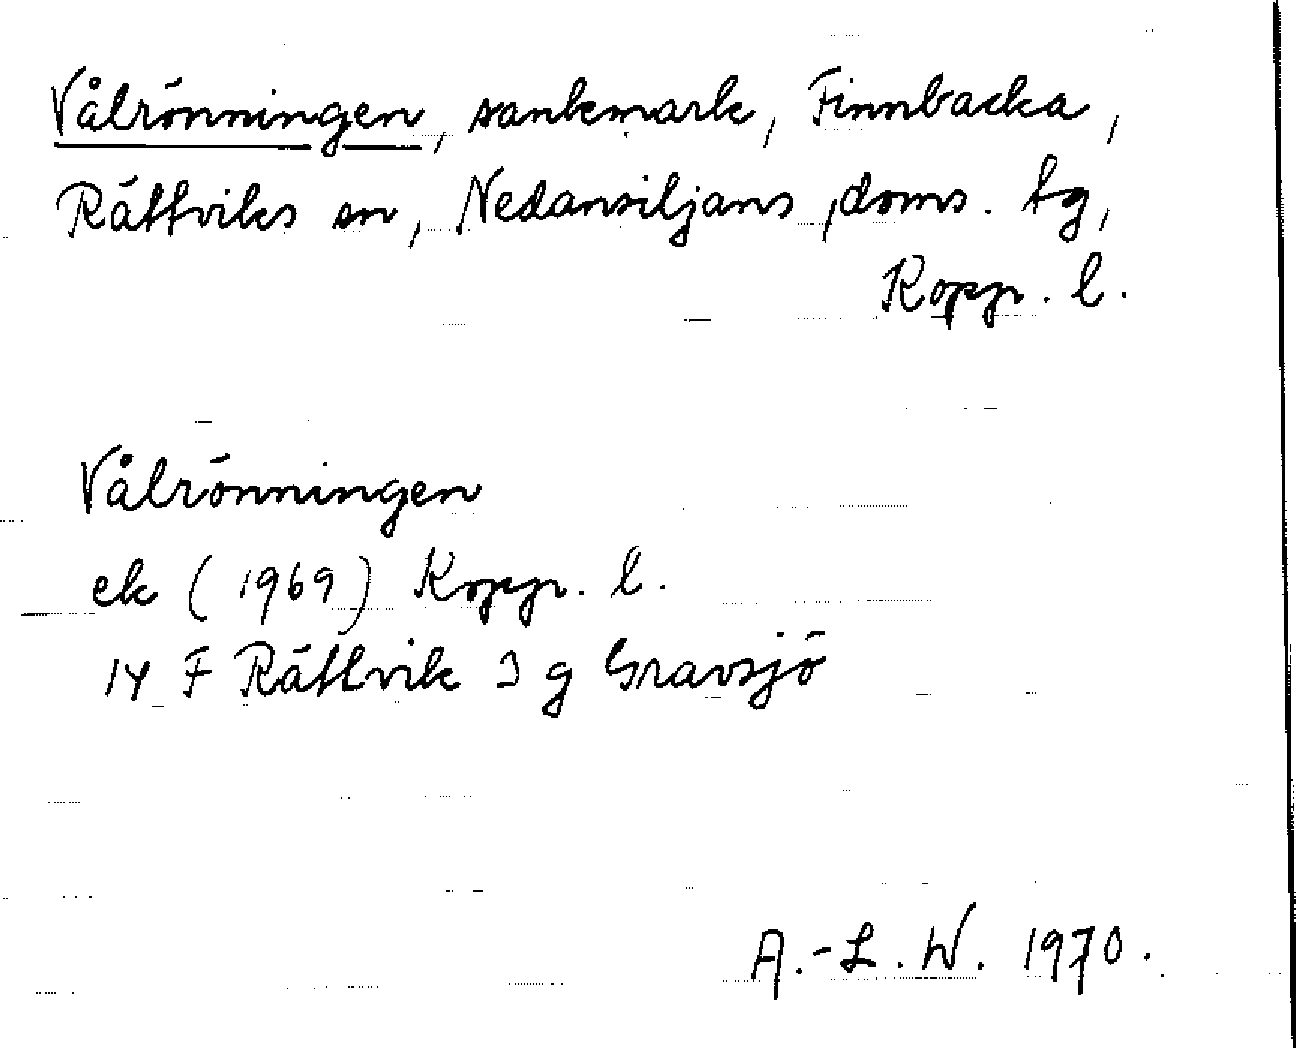 Vålrönningen, sankmark, Finnbacka,
Rättviks sn, Nedansiljans doms. tg,
Kopp. l.
Vålrönningen
ek (1969) Kopp. l.
14 F Rättvik 3 g Gravsjö
A.-L. W. 1970.